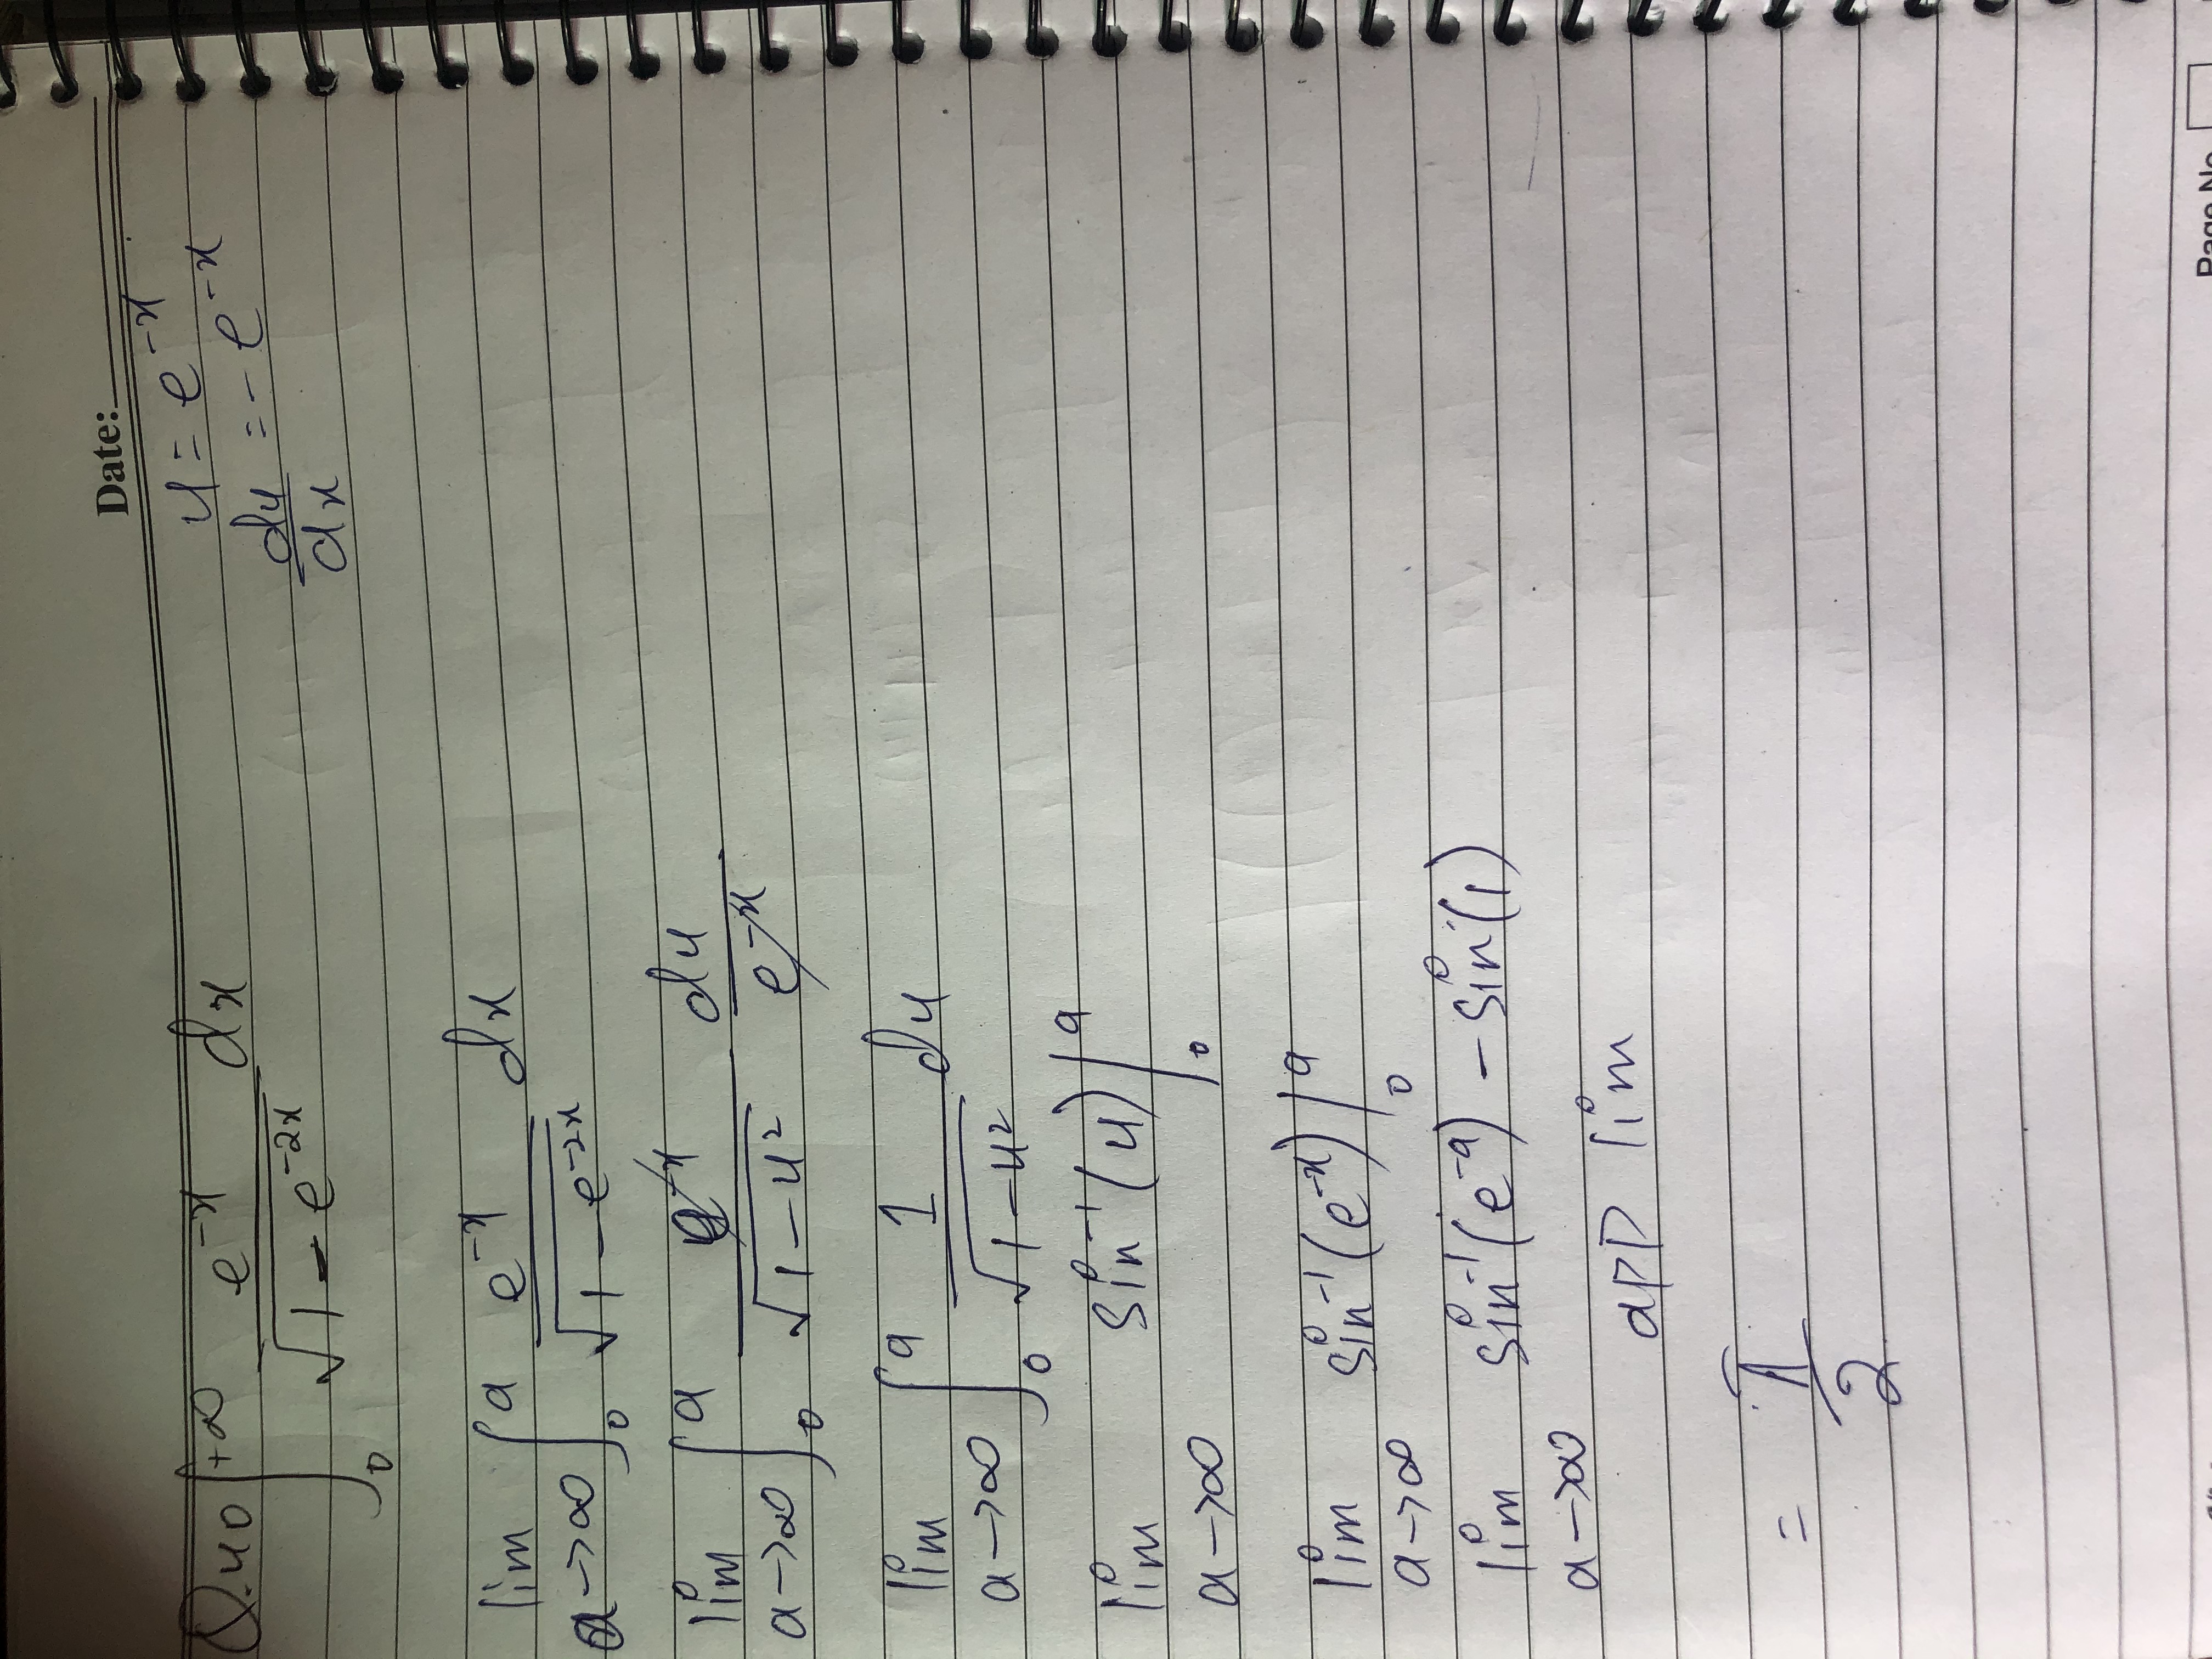 Date:
Q.40 ∫₀^{+∞} e^{-x} / √(1 - e^{-2x}) dx
u = e^{-x}
du/dx = -e^{-x}
lim a→∞ ∫₀^a e^{-x} / √(1 - e^{-2x}) dx
lim a→∞ ∫₀^a e^{-x} / √(1 - u²) du / e^{-x}
lim a→∞ ∫₀^a 1 / √(1 - u²) du
lim a→∞ sin⁻¹(u) |₀^a
lim a→∞ sin⁻¹(e^{-x}) |₀^a
lim a→∞ sin⁻¹(e^{-a}) - sin⁻(1)
app lim
= π/2
Page No